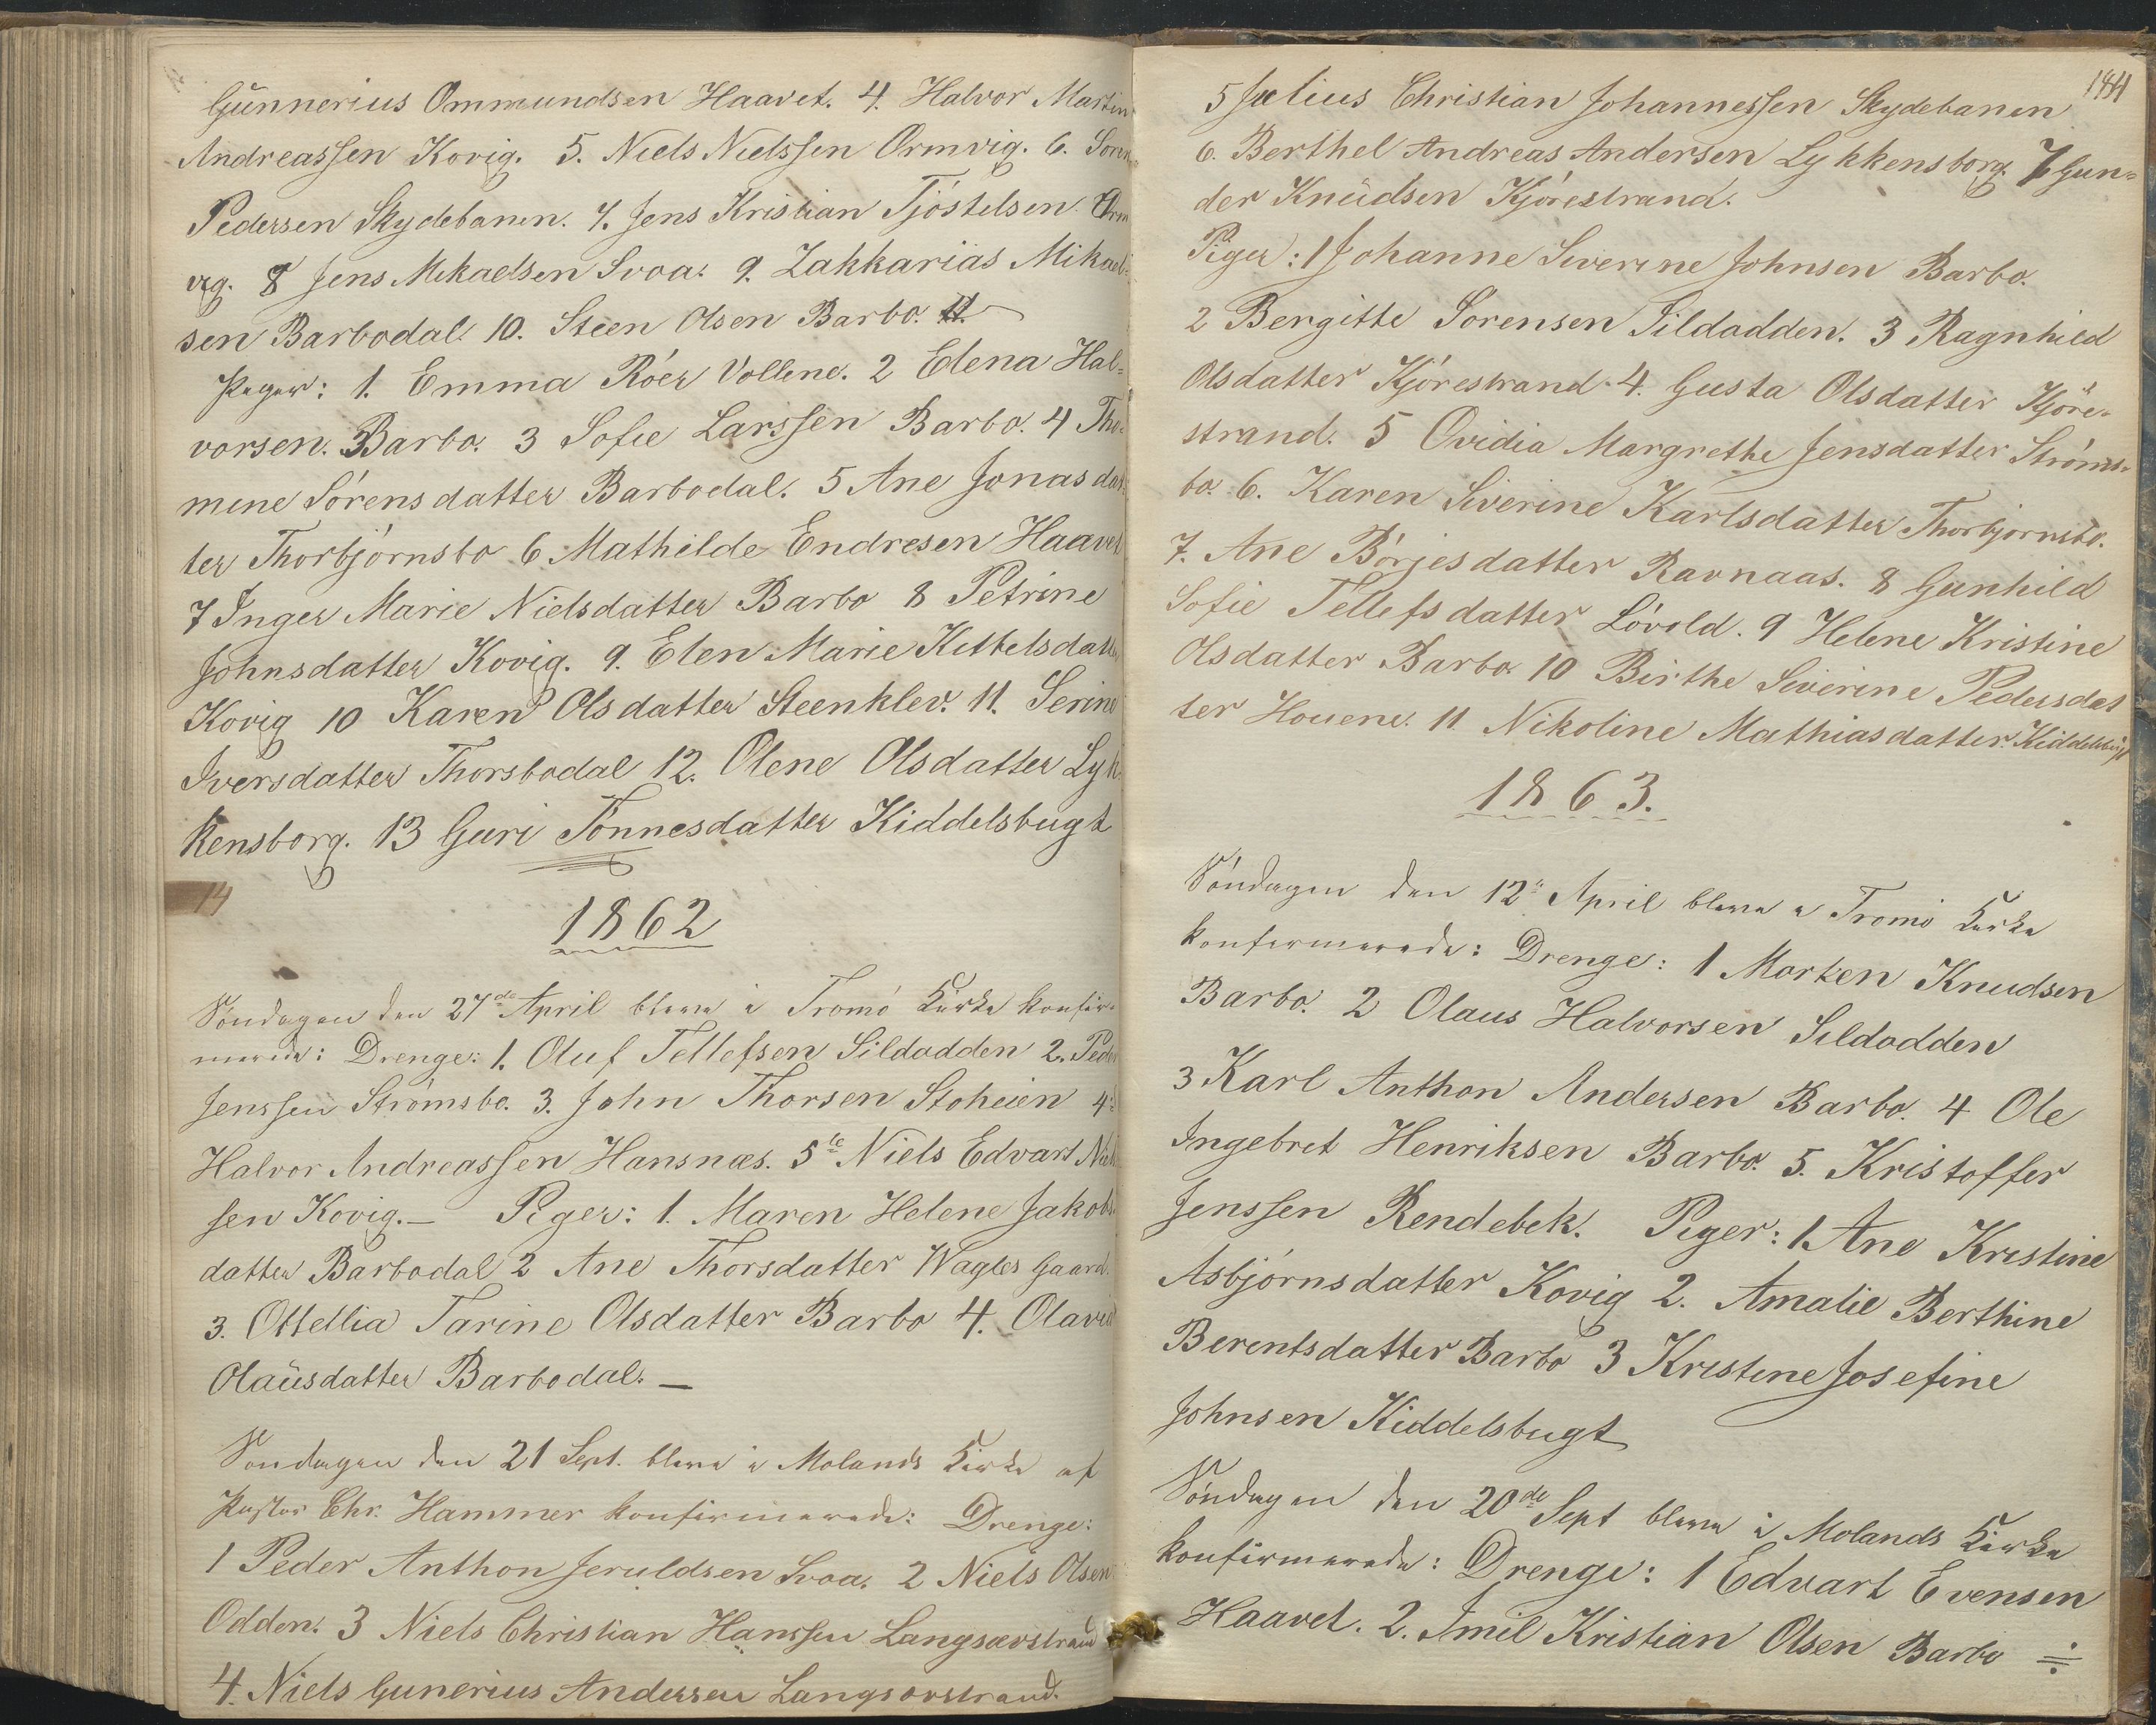 Gunnerius Ommundsen Haavet. 4. Halvor Martin
Andreassen Kovig. 5. Niels Nielssen Ormvig. 6. Sören
Pedersen Skydebanen. 7. Jens Kristian Tjöstelsen Orm
vig. 8 Jens Mikaelsen Svoa. 9. Zakkarias Mikael-
sen Barbodal. 10. Steen Olsen Barbo. 11.
Piger: 1. Emma Röer Vollene. 2 Elena Hal-
vorsen. Barbo. 3 Sofie Larssen Barbo. 4 Tho-
mine Sörensdatter Barbodal. 5 Ane Jonasdat-
ter Thorbjörnsbo 6 Mathilde Endresen Haavet
7 Inger Marie Nielsdatter Barbo 8 Petrine
Johnsdatter Kovig. 9. Elen Marie Kittelsdatter
Kovig 10 Karen Olsdatter Steenklev. 11. Serine
Iversdatter Thorsbodal 12. Olene Olsdatter Lyk-
kensborg. 13 Guri Tönnesdatter Kiddelsbugt
14
1862
Söndagen den 27de April bleve i Tromö Kirke konfir-
merede: Drenge: 1. Oluf Tellefsen Sildodden 2. Peder
Jenssen Strömsbo. 3. John Thorsen Stoheien 4.
Halvor Andreassen Hansnæs. 5te Niels Edvart Niel
sen Kovig. — Piger: 1. Maren Helene Jakobs-
datter Barbodal 2 Ane Thorsdatter Wagles Gaard.
3. Ottellia Tarine Olsdatter Barbo 4. Olavia
Olausdatter Barbodal. —
Söndagen den 21 Sept. bleve i Molands Kirke af
Pastor Chr. Hammer konfirmerede: Drenge:
1 Peder Anthon Jeruldsen Svoa. 2 Niels Olsen
Odden. 3 Niels Christian Hanssen Langsævstrand
4. Niels Gunerius Andersen Langsævstrand.
184
5 Julius Christian Johannessen Skydebanen
6. Berthel Andreas Andersen Lykkensborg. 7 Gun-
der Knudsen Kjörestrand.
Piger: 1 Johanne Severine Johnsen Barbo.
2 Bergitte Sörensen Sildodden. 3 Ragnhild
Olsdatter Kjörestrand. 4. Gusta Olsdatter Kjöre-
strand. 5 Ovidia Margrethe Jensdatter Ströms-
bo. 6. Karen Siverine Karlsdatter Thorbjörnsbo.
7. Ane Börjesdatter Ravnaas. 8 Gunhild
Sofie Tellefsdatter Lövold. 9 Helene Kristine
Olsdatter Barbo. 10 Birthe Siverine Pedersdat
ter Houene. 11 Nikoline Mathiasdatter Kiddelsbugt
1863.
Söndagen den 12te April bleve i Tromö Kirke
konfirmerede: Drenge: 1 Morten Knudsen
Barbo. 2 Olaus Halvorsen Sildodden
3 Karl Anthon Andersen Barbo. 4 Ole
Ingebret Henriksen Barbo. 5. Kristoffer
Jenssen Rendebek. Piger: 1. Ane Kristine
Asbjörnsdatter Kovig 2. Amalie Berthine
Berentsdatter Barbo 3 Kristine Josefine
Johnsen Kiddelsbugt
Söndagen den 20de Sept bleve i Molands Kirke
konfirmerede: Drenge: 1 Edvart Evensen
Haavet. 2. Emil Kristian Olsen Barbo